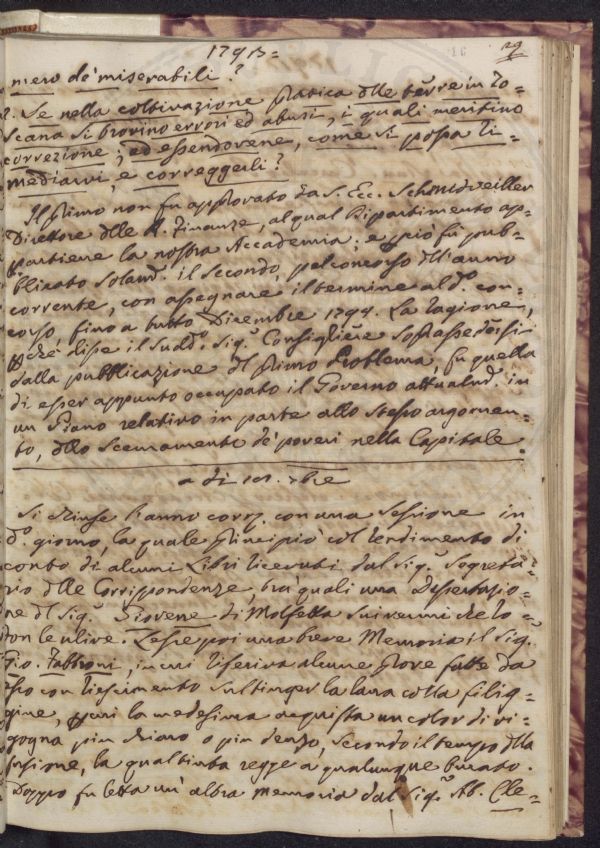 1793=
29
mero de' miserabili?
2. Se nella coltivazione pratica dlle terre in To=
scana si trovino errori ed abusi, i quali meritino
correzione; ed essendovene, come si possa ri=
mediarvi, e correggerli?
Il primo non fu approvato da S. Ecc. Schmidveiller
Direttore dlle R. Finanze, al qual Dipartimento ap=
partiene la nostra Accademia; e perciò fu pub=
blicato soland. il secondo, pel concorso dll'anno
corrente, con assegnare il termine al do. con=
corso fino a tutto Dicembre 1794. La ragione,
pchè disse il suddo. Sigr. Consigliere soprassedersi
dalla pubblicazione dl primo Problema, fu quella
di esser appunto occupato il Governo attualmd. in
un Piano relativo in parte allo stesso argomen=
to, dllo scemamento de' poveri nella Capitale.
a dì xbre
Si chiuse l'anno corr. con una Sessione in
do. giorno, la quale principiò col rendimento di
conto di alcuni Libri ricevuti dal Sigr. Segreta=
rio dlle Corrispondenze, tra' quali una Dissertazio=
ne dl Sigr. Giovene di Molfetta sui vermi che ro=
don le ulive. Lesse poi una breve Memoria il Sigr.
Gio. Fabbroni, in cui riferiva alcune prove fatte da
esso con riescimento sul tinger la lana colla filig=
gine, pcui la medesima acquista un color di vi=
gogna più chiaro o più denso, secondo il tempo dlla
infusione, la qual tinta regge a qualunque bucato.
Doppo fu letta un' altra memoria dal Sigr. Ab. Cle=